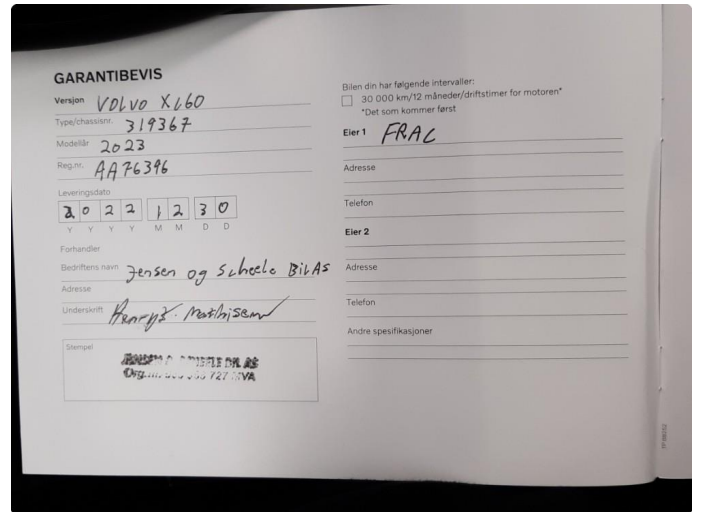 GARANTIBEVIS
Versjon VOLVO XC60
Type/chassisnr. 319367
Modellår 2023
Reg.nr. AA76396
Leveringsdato
2 0 2 2 1 2 3 0
Y Y Y Y M M D D
Forhandler
Bedriftens navn Jensen og Scheele Bil AS
Adresse
Underskrift Mathisen
Stempel
BIL AS
Org.nr. 727 MVA
Bilen din har følgende intervaller:
30 000 km/12 måneder/driftstimer for motoren*
*Det som kommer først
Eier 1 FRAC
Adresse
Telefon
Eier 2
Adresse
Telefon
Andre spesifikasjoner